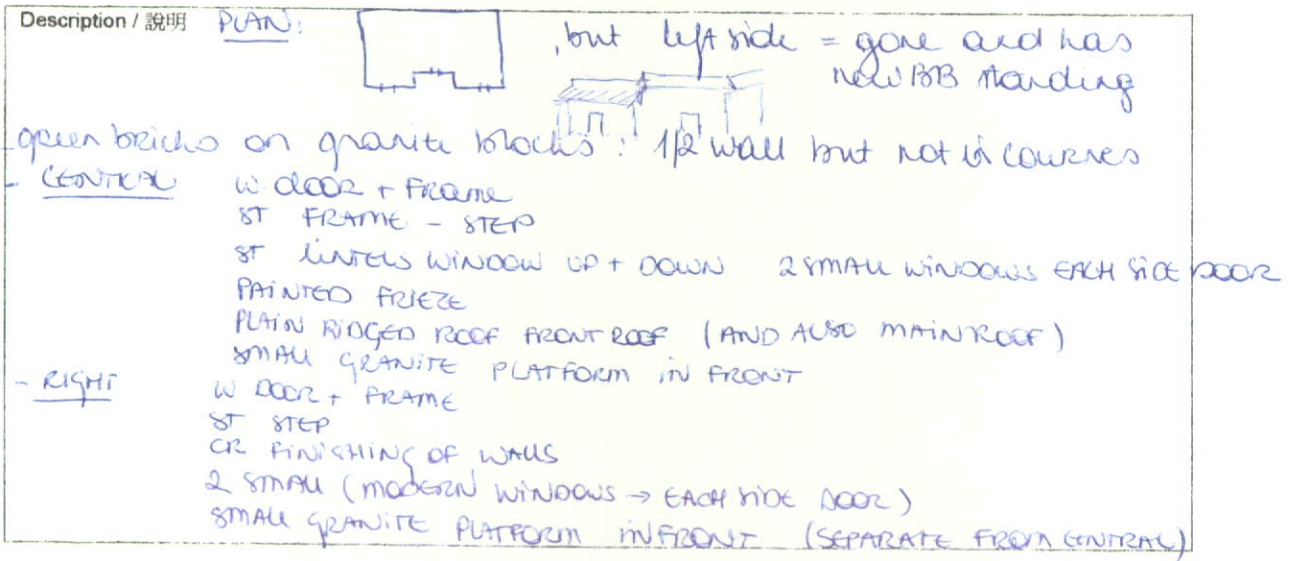 Description / 說明 PLAN: , but left side = gone and has
new BB standing
- green bricks on granite blocks : 1/2 wall but not in courses
- CENTRAL W DOOR + FRAME
ST FRAME - STEP
ST LINTELS WINDOW UP + DOWN 2 SMALL WINDOWS EACH SIDE DOOR
PAINTED FRIEZE
PLAIN RIDGED ROOF FRONT ROOF (AND ALSO MAIN ROOF)
SMALL GRANITE PLATFORM IN FRONT
- RIGHT W DOOR + FRAME
ST STEP
CR FINISHING OF WALLS
2 SMALL (MODERN WINDOWS → EACH SIDE DOOR)
SMALL GRANITE PLATFORM IN FRONT (SEPARATE FROM CENTRAL)